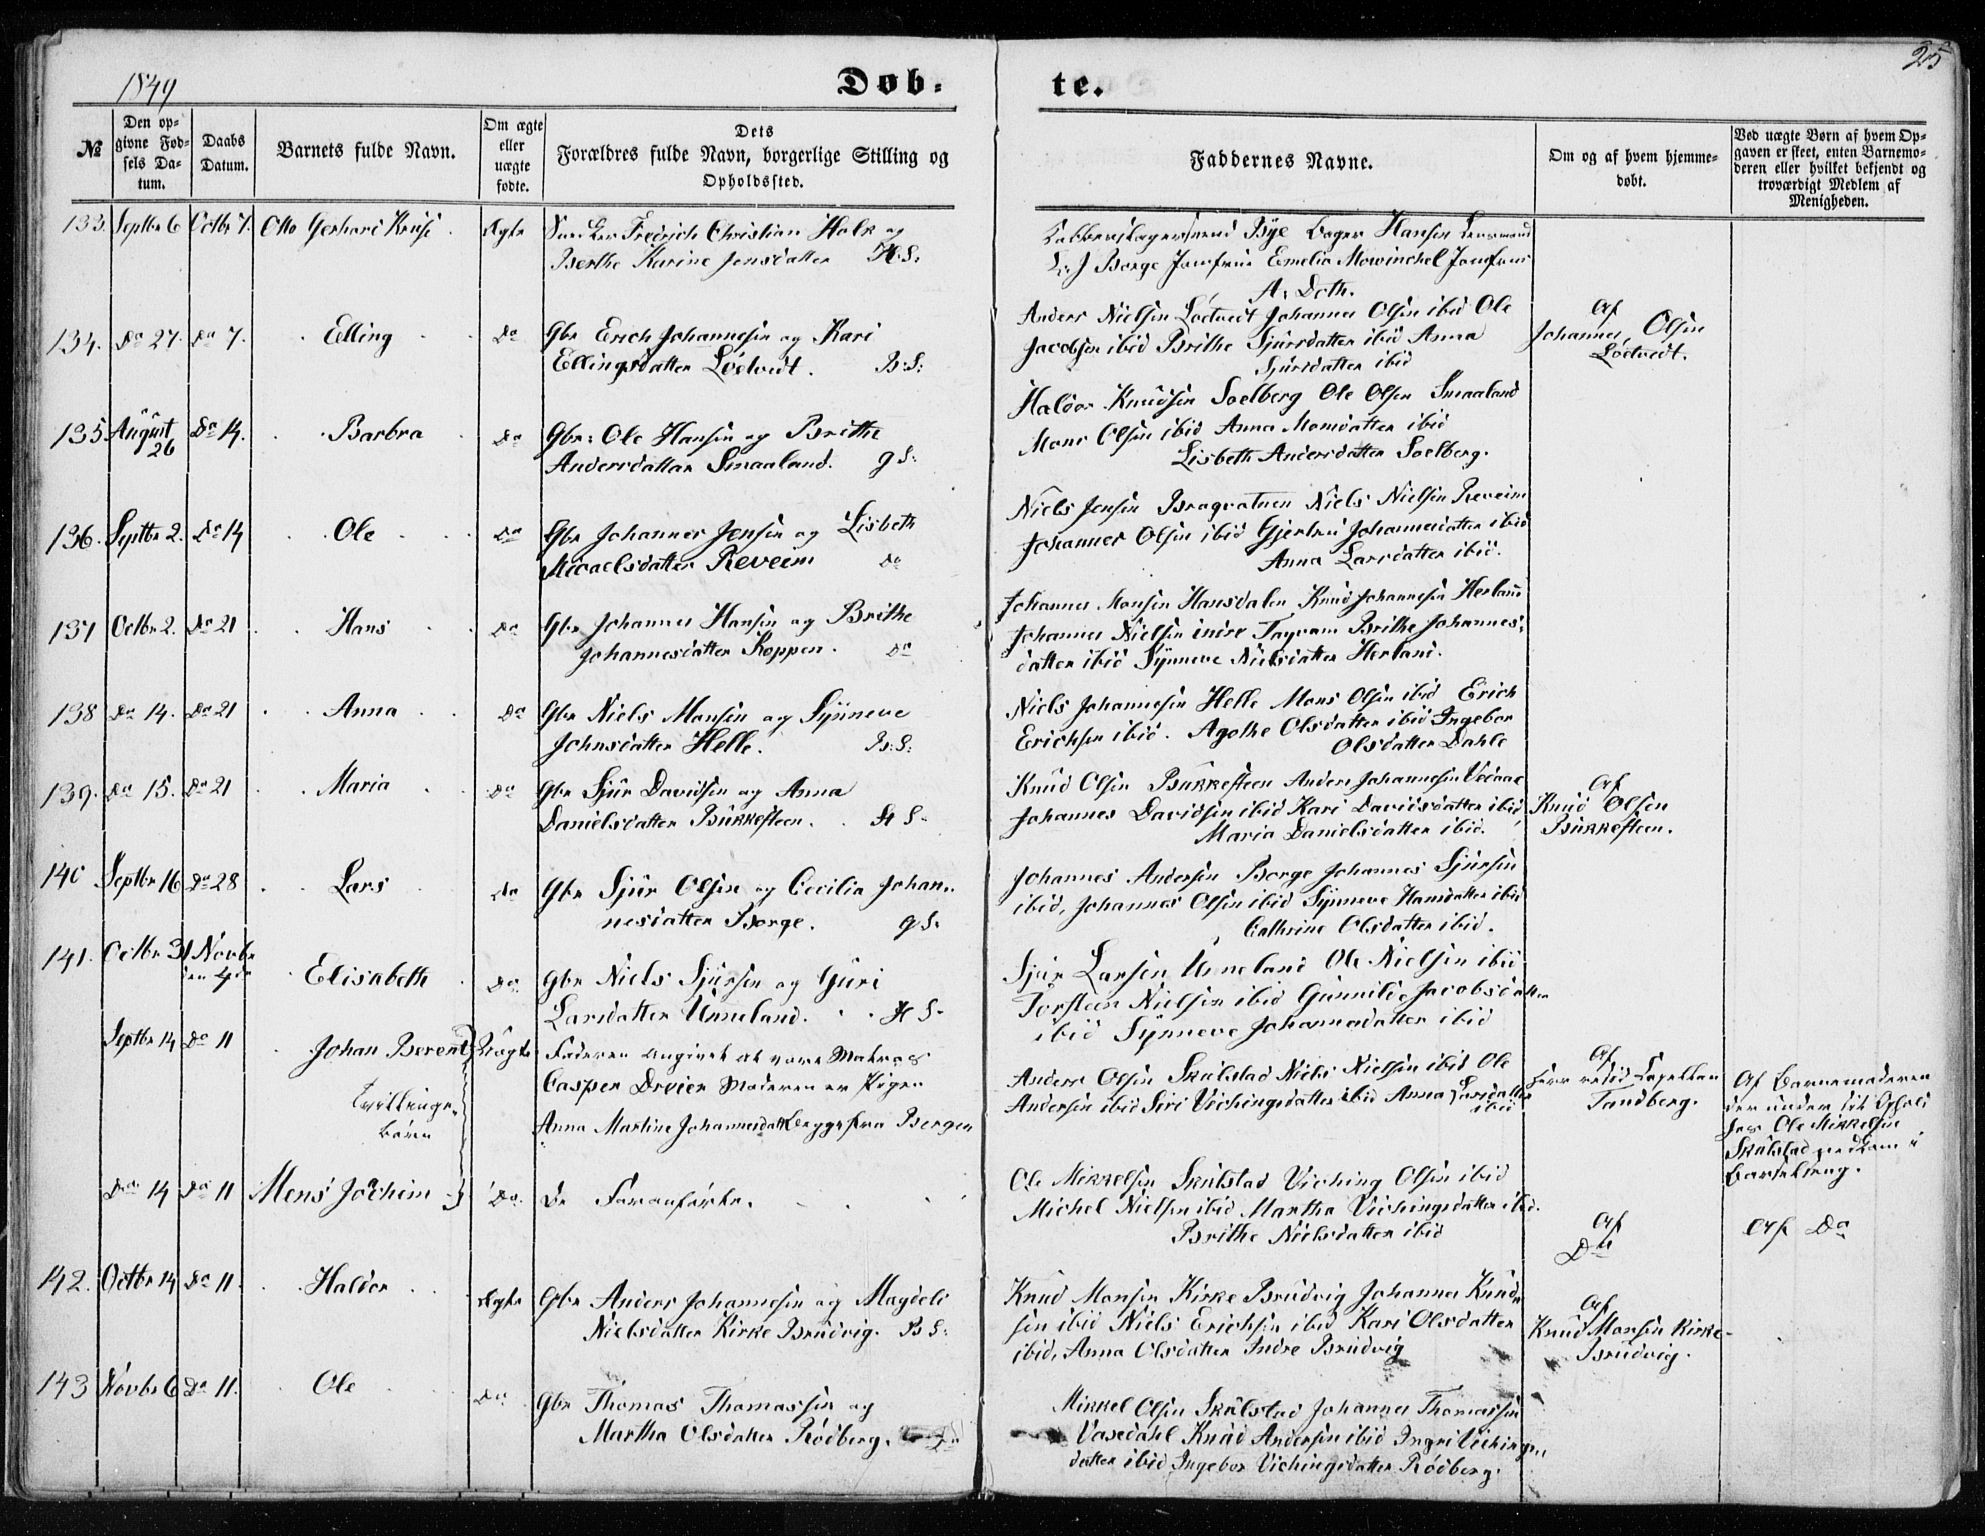 1849
Døb-
te.
25
№
Den op-
givne Fød-
sels Da-
tum.
Daabs
Datum.
Barnets fulde Navn.
Om ægte
eller
uægte
fødte.
Dets
Forældres fulde Navn, borgerlige Stilling og
Opholdssted.
Faddernes Navne.
Om og af hvem hjemme-
døbt.
Ved uægte Børn af hvem Op-
gaven er skeet, enten Barnemo-
deren eller hvilket bekjendt og
troværdigt Medlem af
Menigheden.
133. Septbr 6 Octbr 7. Otto Gerhard Ægte Fredrich Christian Holk og
Berthe Karine Jensdatter H:S:
Bye Hansen
Borge Jomfrue Emelia Mowinchel Jomfrue
A. Doth.
134. Do 27. Do 7. Elling Do Gbr Erich Johannesen og Kari
Ellingsdatter Lödvedt. B:S:
Anders Nielsen Lödvedt Johannes Olsen ibid Ole
Jacobsen ibid Brithe Sjursdatter ibid Anna
Sjursdatter ibid
Af
Johannes Olsen
Lödvedt.
135. August
26 Do 14. Barbra Do Gbr: Ole Hansen og Brithe
Andersdatter Smaaland. g S:
Haldor Knudsen Soelberg Ole Olsen Smaaland
Mons Olsen ibid Anna Monsdatter ibid
Lisbeth Andersdatter Soelberg.
136. Septbr 2. Do 14 Ole Do Gbr Johannes Jensen og Lisbeth
Micaelsdatter Reveim Do
Niels Jensen Niels Nielsen Reveim
Johannes Olsen ibid Gjertru Johannesdatter ibid
Anna Larsdatter ibid.
137 Octbr 2. Do 21 Hans Do Gbr Johannes Hansen og Brithe
Johannesdatter Koppen. Do
Johannes Monsen Hansdalen Knud Johannesen Herland
Johannes Nielsen indre Brithe Johannes-
datter ibid Synneve Nielsdatter Herland.
138 Do 14. Do 21 Anna Do Gbr Niels Monsen og Synneve
Johnsdatter Helle. B:S:
Niels Johannesen Helle Mons Olsen ibid Erich
Erichsen ibid. Agothe Olsdatter ibid Ingebor
Olsdatter Dahle
139. Do 15. Do 21 Maria Do Gbr Sjur Davidsen og Anna
Danielsdatter Bukkesteen. H S-
Knud Olsen Bukkesteen Anders Johannesen
Johannes Davidsen ibid Kari Davidsdatter ibid,
Maria Danielsdatter ibid.
Af
Knud Olsen
Bukkesteen.
140 Septbr 16 Do 28 Lars do Gbr Sjur Olsen og Cecilia Johan-
nesdatter Borge. g S:
Johannes Andersen Borge Johannes Sjursen
ibid, Johannes Olsen ibid Synneve Hansdatter ibid
Cathrine Olsdatter ibid.
141. Octbr 31 Novbr
den 4de Elisabeth Do. Gbr Niels Sjursen og Guri
Larsdatter Unneland. H S-
Sjur Larsen Unneland Ole Nielsen ibid
Torsteen Nielsen ibid Gunnilde Jacobsdatter
ibid Synneve Johannesdatter ibid
Septbr 14 Do 11 Johan Berent Uægte Faderen angivet at være Matros
Casper Dreier Moderen er Pigen
Anna Martine Johannesdatter fra Bergen
Tvillinge-
børn
Anders Olsen Skulstad Niels Nielsen ibid Ole
Andersen ibid Siri Vichingsdatter ibid Anna Larsdatter
ibid
Af
Herr Capellan
Tandberg.
Af Barnemoderen
der under sit Ophold
hos Ole Mikkelsen
Skulstad nedkom i
Barselseng.
Do 14 Do 11 Mens Jochim Do. De Foranførte.
Ole Mikkelsen Skulstad Viching Olsen ibid
Michel Nielsen ibid Martha Vichingsdatter ibid.
Brithe Nielsdatter ibid
Af
Do
Af Do
142. Octbr 14 Do 11. Haldor Ægte Gbr Anders Johannesen og Magdeli
Nielsdatter Kirke Brudvig. B S:
Knud Monsen Kirke Brudvig Johannes Knud-
sen ibid Niels Erichsen ibid Kari Olsdatter
ibid, Anna Olsdatter Indre Brudvig
Af
Knud Monsen Kirke-
Brudvig.
143 Novbr 6 Do 11. Ole Do Gbr Thomas Thomassen og
Martha Olsdatter Rödberg.
Mikkel Olsen Skulstad Johannes Thomassen
Vasedahl Knud Andersen ibid Ingri Vichings-
datter ibid Ingebor Vichingsdatter Rödberg.